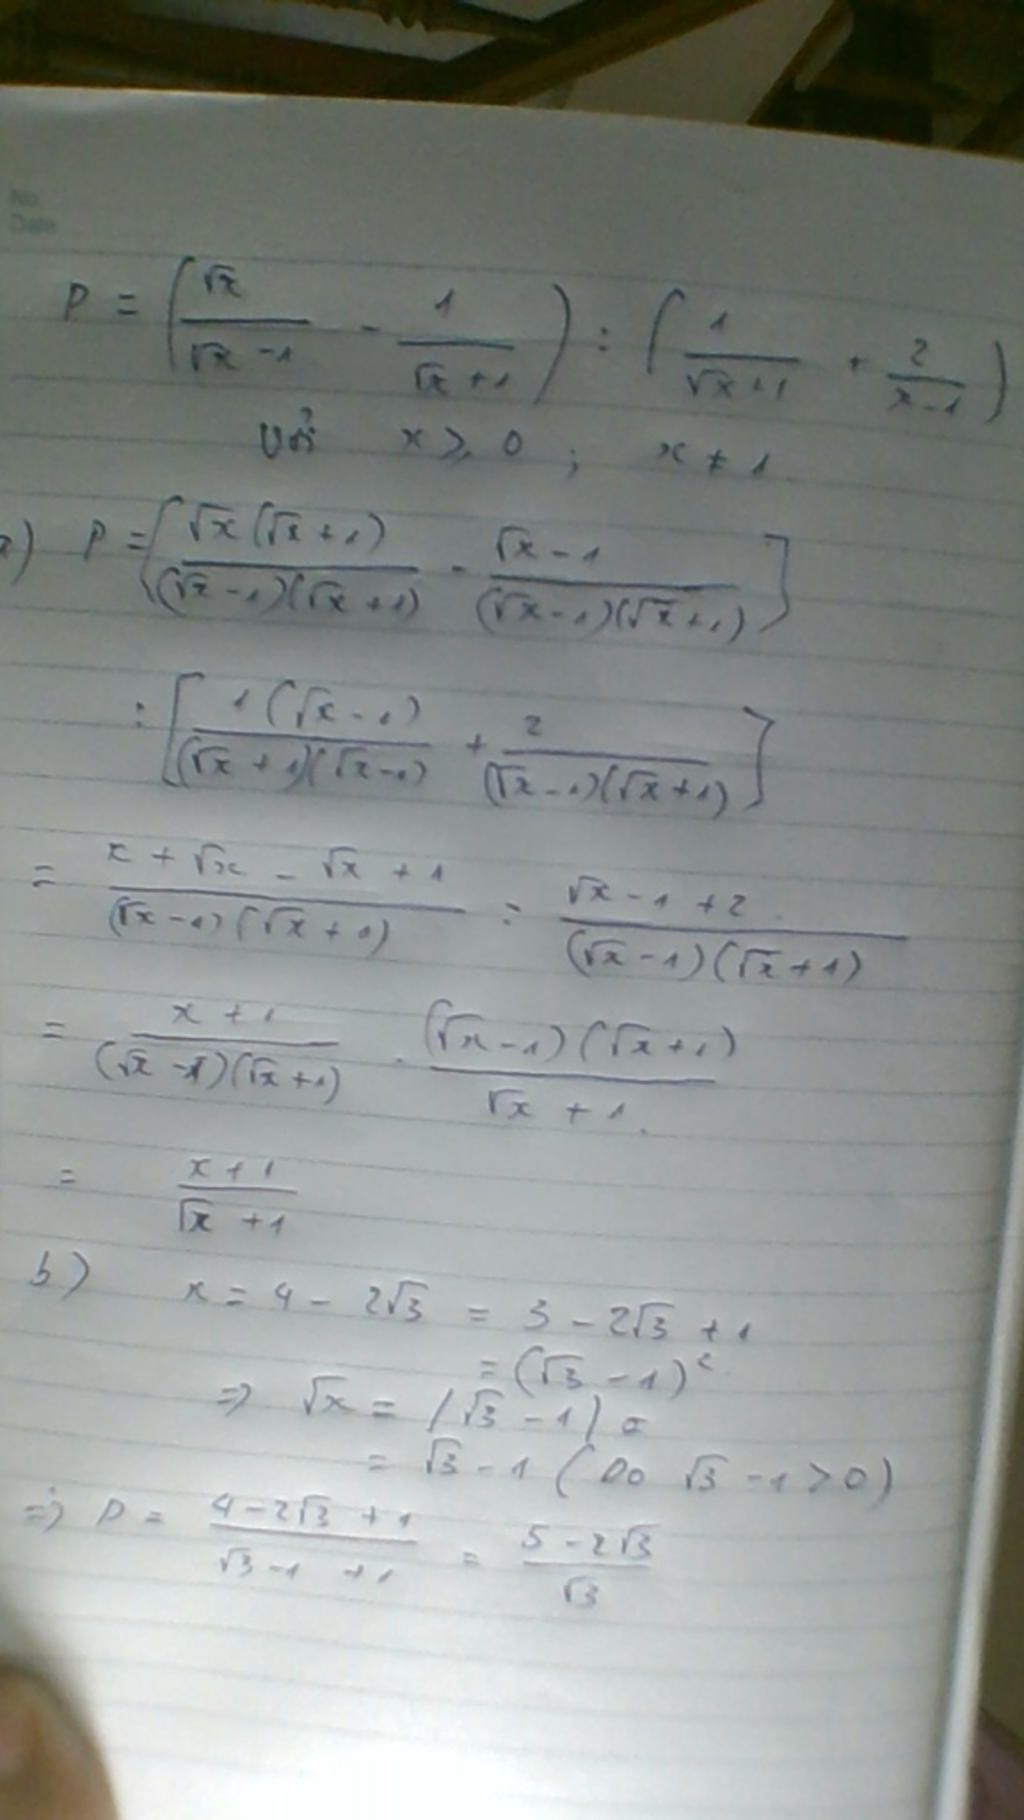 No.
Date
P = (√x / (√x - 1) - 1 / (√x + 1)) : (1 / (√x + 1) + 2 / (x - 1))
Với x ≥ 0 ; x ≠ 1
a) P = [√x(√x + 1) / (√x - 1)(√x + 1) - (√x - 1) / (√x - 1)(√x + 1)]
: [1(√x - 1) / (√x + 1)(√x - 1) + 2 / (√x - 1)(√x + 1)]
= (x + √x - √x + 1) / (√x - 1)(√x + 1) : (√x - 1 + 2) / (√x - 1)(√x + 1)
= (x + 1) / (√x - 1)(√x + 1) . (√x - 1)(√x + 1) / (√x + 1)
= (x + 1) / (√x + 1)
b) x = 4 - 2√3 = 3 - 2√3 + 1
= (√3 - 1)²
=> √x = |√3 - 1| =
= √3 - 1 (Do √3 - 1 > 0)
=> P = (4 - 2√3 + 1) / (√3 - 1 + 1) = (5 - 2√3) / √3